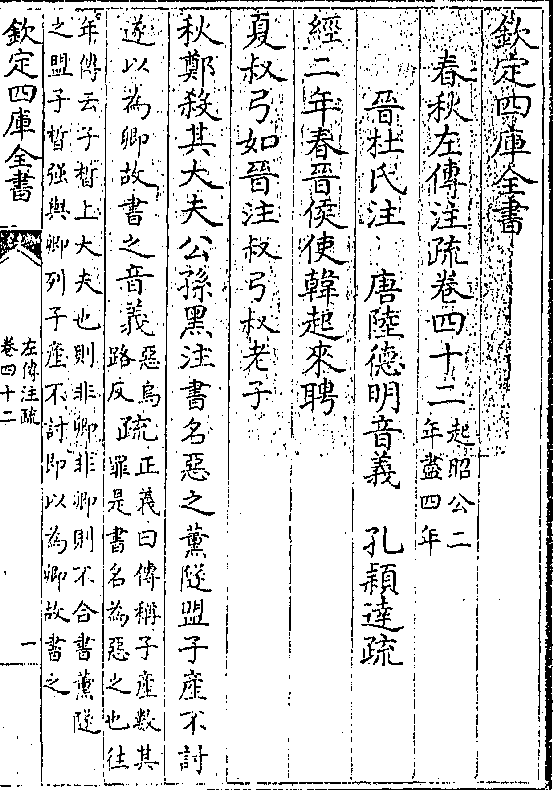 欽定四庫全書
春秋左傳注疏卷四十二起昭公二
年盡四年
晉杜氏注 唐陸德明音義 孔穎達疏
經二年春晉侯使韓起來聘
夏叔弓如晉注叔弓叔老子
秋鄭殺其大夫公孫黑注書名惡之薰隧盟子產不討
遂以為卿故書之音義惡烏
路反疏正義曰傳稱子產數其
罪是書名為惡之也往
年傳云子晳上大夫也則非卿非卿則不合書薰隧
之盟子晳强與卿列子產不討即以為卿故書之
欽定四庫全書
左傳注疏
卷四十二
一